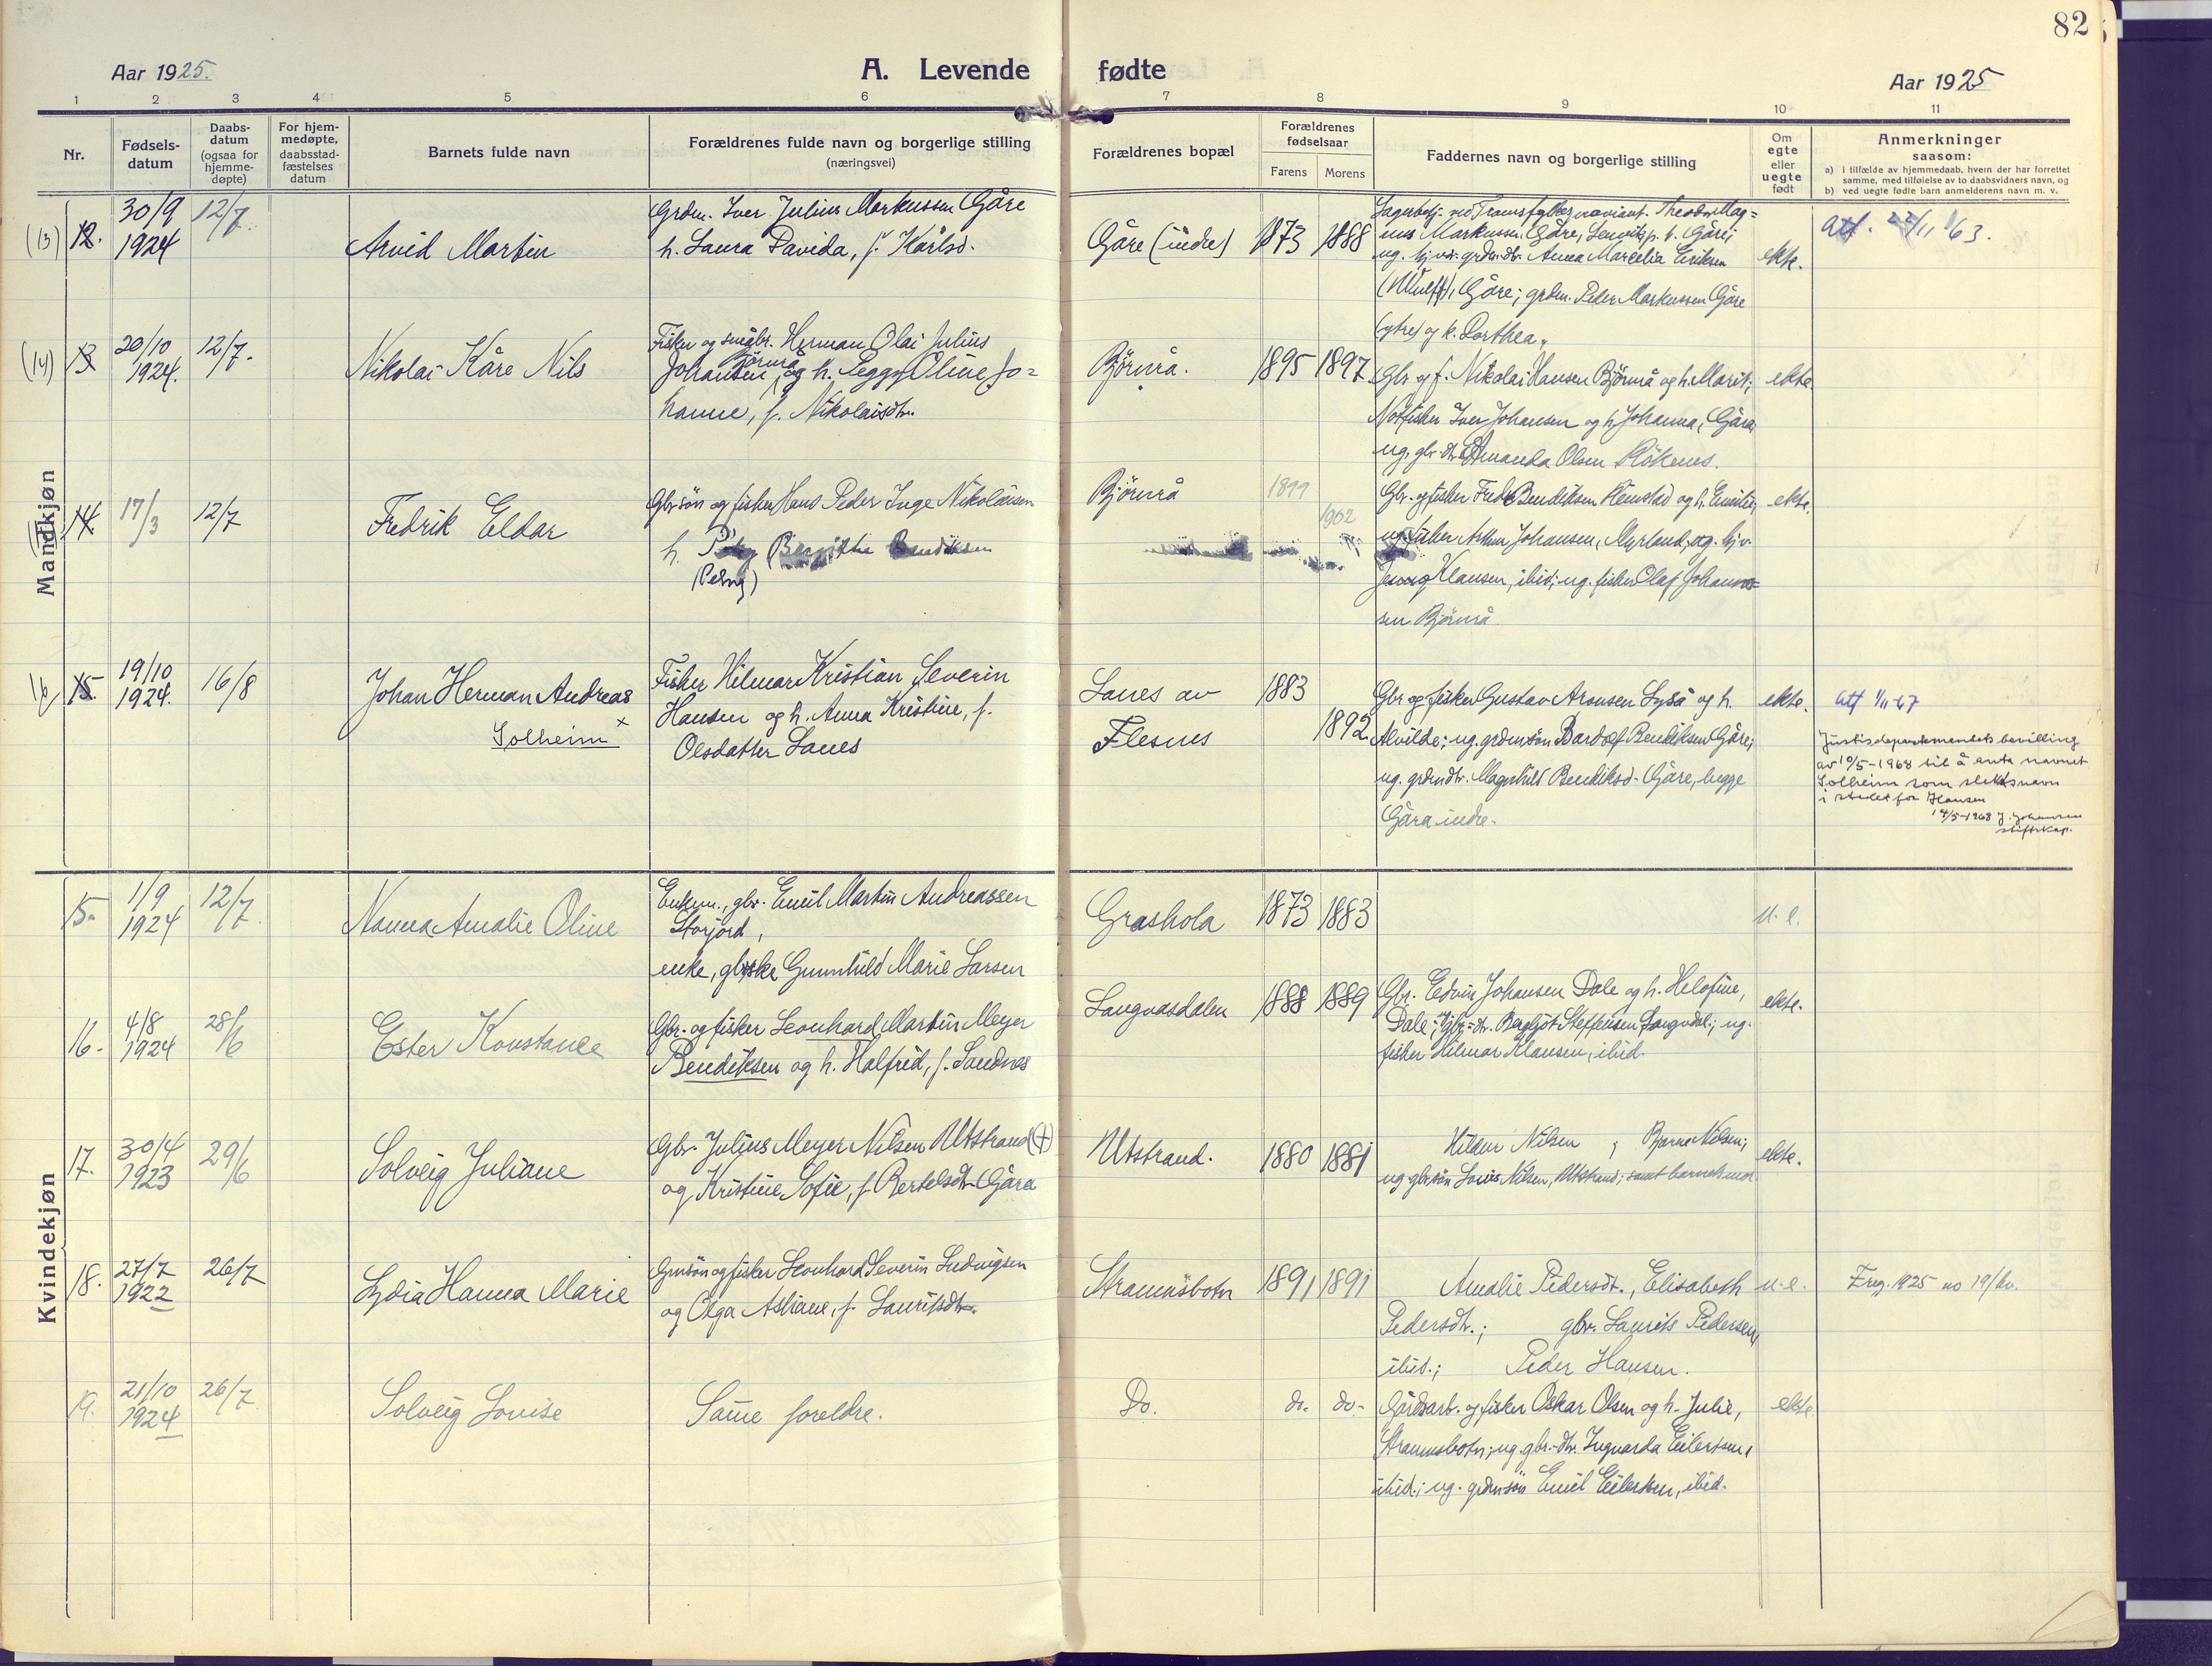 82
Aar 1925.
A. Levende fødte
Aar 1925
1 2 3 4 5 6 7 8 9 10 11
Nr.
Fødsels-
datum
Daabs-
datum
(ogsaa for
hjemme-
døpte)
For hjem-
medøpte,
daabsstad-
fæstelses
datum
Barnets fulde navn
Forældrenes fulde navn og borgerlige stilling
(næringsvei)
Forældrenes bopæl
Forældrenes
fødselsaar
Farens Morens
Faddernes navn og borgerlige stilling
Om
egte
eller
uegte
født
Anmerkninger
saasom:
a) i tilfælde av hjemmedaab, hvem der har forrettet
samme, med tilføielse av to daabsvidners navn, og
b) ved uegte fødte barn anmelderens navn m. v.
Mandkjøn
(13) 12.
30/9
1924
12/7.
Arvid Martin
Grdm. Iver Julius Markussen Gåre
h. Laura Davida, f. Karlsd.
Gåre (indre)
1873 1888
Theodor Mag=
nus Markussen Gåre,
ug. grdm.dtr. Anna Marcelia Eriksen
Gåre; grdm. Peder Markussen Gåre
(ytre) og h. Dorthea.
ekte.
att. 22/11 63.
(14) 13
20/10
1924.
12/7.
Nikolai Kåre Nils
Fisker og småbr. Herman Olai Julius
Johansen Bjørnrå og h. Peggy Oline Jo=
hanne, f. Nikolaisdtr.
Bjørnrå.
1895 1897.
Gbr og f. Nikolai Hansen Bjørnrå og h. Marit;
Notfisker Iver Johansen og h. Johanna, Gåra,
ug. gbr. dtr. Amanda Olsen Røkenes.
ekte
14
17/3
12/7
Fredrik Eldar
Gbrsøn og fisker Hans Peder Inge Nikolaisen
h. Bergithe Bendiksen
Bjørnrå
1899
1902
Gbr. og fisker Fredr Bendiksen Renstad og h. Emilie;
fisker Johansen, Myrland, ug. hjv.
Jenny Klausen, ibid; ug. fisker Olaf Johan=
sen Bjørnrå
ekte.
16 15.
19/10
1924.
16/8
Johan Herman Andreas
Solheim x
Fisker Hilmar Kristian Severin
Hansen og h. Anna Kristine, f.
Olsdatter Sanes
Sanes av
Flesnes
1883
1892
Gbr og fisker Gustav Aronsen Lyså og h.
Alvilde; ug. grdmsøn Bardolf Bendiksen Gåre;
ug. grdmdtr. Magnhild Bendiksd. Gåre, begge
Gåra indre.
ekte.
att 1/11-67
Justisdepartementets bevilling
av 10/5-1968 til å anta navnet
Solheim som slektsnavn
i stedet for Hansen
14/5-1968 J. Johansen
stiftskap.
Kvindekjøn
15.
1/9
1924
12/7.
Nanna Amalie Oline
Enkem., gbr. Emil Martin Andreassen
Storjord,
enke, gbrske Gunnhild Marie Larsen
Grashola
1873 1883
u.e.
16.
4/8
1924
28/6
Ester Konstance
Gbr. og fisker Leonhard Martin Meyer
Bendiksen og h. Halfrid, f. Sandnes
Langvasdalen
1888 1889
Gbr. Edvin Johansen Dale og h. Helofine,
Dale; Gbr.=dtr. Bergljot Steffensen Langvdal.; ug.
fisker Hilmar Klausen, ibid.
ekte.
17.
30/4
1923
29/6
Solveig Juliane
Gbr. Julius Meyer Nilsen Utstrand (+)
og Kristine Sofie, f. Bertelsdtr. Gåra
Utstrand.
1880 1881
Hildur Nilsen ; Bjarne Nilsen;
ug gbrsøn Louis Nilsen, Utstrand; samt barnets mor
ekte.
18.
27/7
1922
26/7
Lydia Hanna Marie
Gmsøn og fisker Leonhard Severin Ludvigsen
og Olga Asliane, f. Lauritsdtr.
Straumsbotn
1891 1891
Amalie Pedersdt., Elisabeth
Pedersdtr.; gbr. Laurits Pedersen,
ibid.; Peder Hansen.
u.e.
Freg. 1925 no 19/kv.
19.
21/10
1924
26/7
Solveig Lovise
Same foreldre.
Do.
do. do.
Gårdsarb. og fisker Oskar Olsen og h. Julie,
Straumsbotn; ug. gbr.-dtr. Ingvarda Eilertsen,
ibid.; ug. grdmsøn Emil Eilertsen, ibid.
ekte